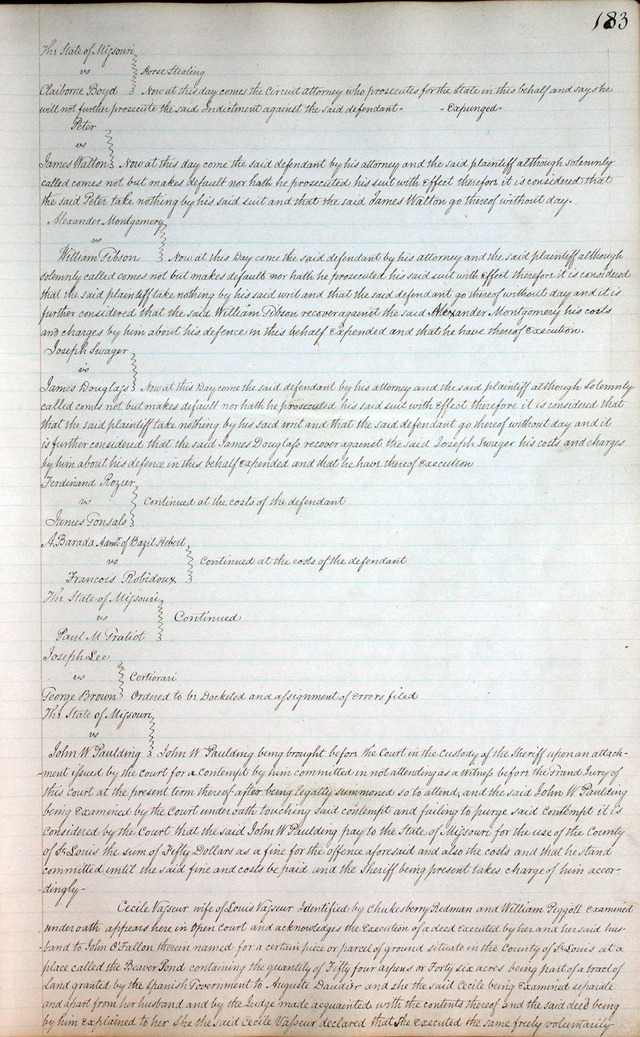 183
The State of Missouri
vs Horse Stealing
Claiborne Boyd Now at this day comes the Circuit attorney who prosecutes for the State in this behalf and says he
will not further prosecute the said Indictment against the said defendant - - Expunged -
Peter
vs
James Walton Now at this day come the said defendant by his attorney and the said plaintiff although solemnly
called comes not but makes default nor hath he prosecuted his suit with Effect therefore it is considered that
the said Peter take nothing by his said suit and that the said James Walton go thereof without day.
Alexander Montgomery
vs
William Gibson Now at this Day come the said defendant by his attorney and the said plaintiff although
solemnly called comes not but makes default nor hath he prosecuted his said suit with Effect therefore it is considered
that the said plaintiff take nothing by his said writ and that the said defendant go thereof without day and it is
further considered that the said William Gibson recover against the said Alexander Montgomery his costs
and charges by him about his defence in this behalf Expended and that he have thereof Execution.
Joseph Swager
vs
James Douglass Now at this Day come the said defendant by his attorney and the said plaintiff although Solemnly
called comes not but makes default nor hath he prosecuted his said suit with Effect therefore it is considered that
that the said plaintiff take nothing by his said writ and that the said defendant go thereof without day and it
is further considered that the said James Douglass recover against the said Joseph Swager his costs and charges
by him about his defence in this behalf Expended and that he have thereof Execution
Ferdinand Rozier
vs Continued at the costs of the defendant
James Gonsals
A Barada Admr. of Bazil Hebert
vs Continued at the costs of the defendant
Francois Robidoux
The State of Missouri
vs Continued
Paul M Gratiot
Joseph Lee
vs Certiorari
George Brown Ordered to be Docketed and assignment of Errors filed
The State of Missouri
vs
John W Paulding John W Paulding being brought before the Court in the custody of the Sheriff upon an attach-
-ment issued by the court for a contempt by him committed in not attending as a witness before the Grand Jury of
this Court at the present term thereof after being legally summoned so to attend, and the said John W Paulding
being Examined by the Court under oath touching said contempt and failing to purge said Contempt it is
considered by the Court that the said John W Paulding pay to the State of Missouri for the use of the County
of St Louis the sum of Fifty Dollars as a fine for the offence aforesaid and also the costs and that he stand
committed until the said fine and costs be paid and the Sheriff being present takes charge of him accor-
-dingly -
Cecile Vasseur wife of Louis Vasseur Identified by Chukesberry Redman and William Piggott Examined
under oath appears here in Open Court and acknowledges the Execution of a deed Executed by her and her said hus-
-band to John O'Fallon therein named for a certain piece or parcel of ground situate in the County of St Louis at a
place called the Beaver Pond containing the quantity of Fifty four arpens or Forty six acres being part of a tract of
Land granted by the Spanish Government to Auguste Dauder and she the said Cecile being Examined separate
and apart from her husband and by the Judge made acquainted with the contents thereof and the said deed being
by him explained to her She the said Cecile Vasseur declared that She Executed the same freely voluntarily